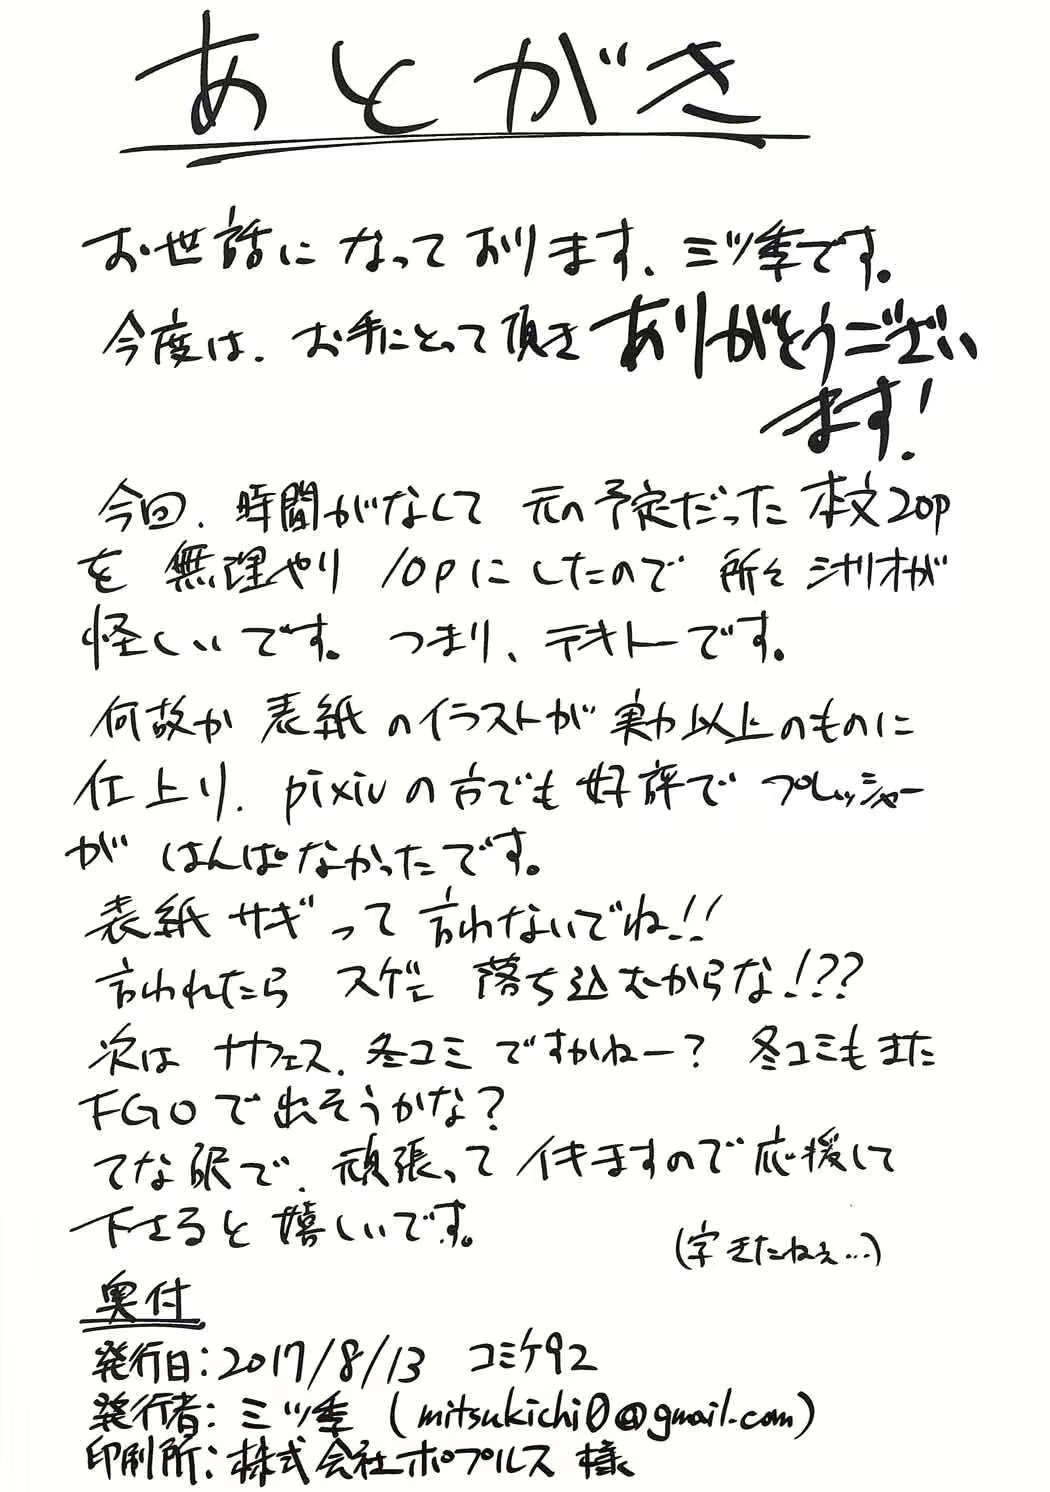 あとがき
お世話になっております、ミツ季です。
今度は、お手にとって頂きありがとうござい
ます!
今回、時間がなくて 元の予定だった 本文20p
を 無理やり 10pにしたので 所々シナリオが
怪しいです。 つまり、テキトーです。
何故か 表紙のイラストが 実力以上のものに
仕上り、pixivの方でも好評で プレッシャー
が はんぱなかったです。
表紙サギって言わないでね!!
言われたら スゲェ 落ち込むからな!??
次は サナフェス、冬コミですかねー? 冬コミもまた
FGOで出そうかな?
てな訳で、頑張ってイキますので応援して
下さると嬉しいです。
(字きたねぇ…)
奥付
発行日:2017/8/13 コミケ92
発行者:ミツ季 (mitsukichi0@gmail.com)
印刷所:株式会社ポプルス 様